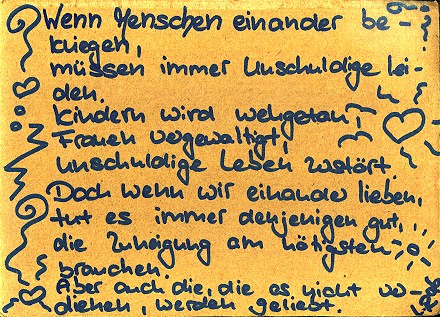 Wenn Menschen einander be-
kriegen,
müssen immer Unschuldige lei-
den.
Kindern wird wehgetan,
Frauen vergewaltigt,
unschuldige Leben zerstört.
Doch wenn wir einander lieben,
tut es immer denjenigen gut,
die Zuneigung am nötigsten
brauchen.
Aber auch die, die es nicht ver-
dienen, werden geliebt.